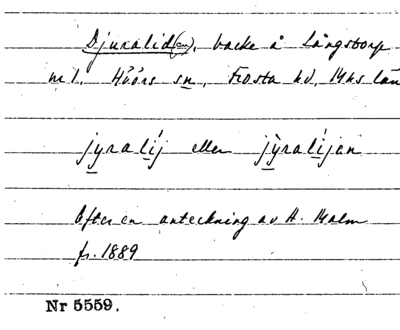 Djuralid(en), backe å Långstorp
n:1. Höörs sn, Frosta hd, Mhs län
jyralíj eller jỳralíjen
Efter en anteckning av H. Malm
fr. 1889
Nr 5559.